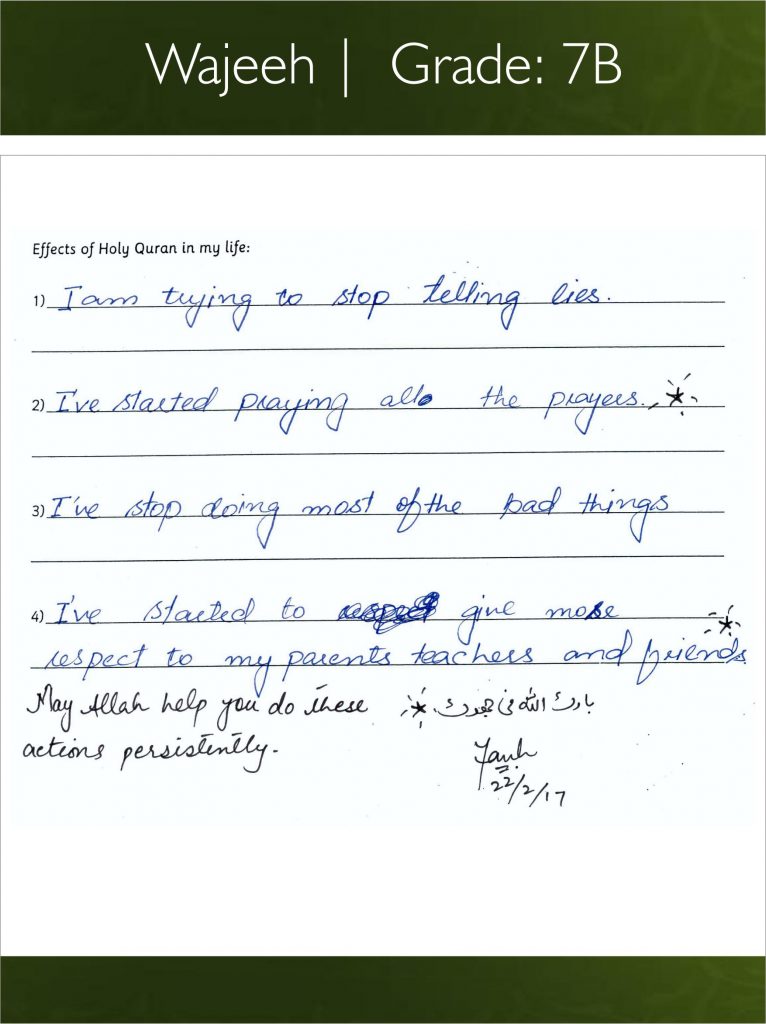 Wajeeh | Grade: 7B
Effects of Holy Quran in my life:
1) I am trying to stop telling lies.
2) I've started praying all the prayers.
3) I've stop doing most of the bad things
4) I've started to give more
respect to my parents teachers and friends
May Allah help you do these
actions persistently.
بارك الله في جهودك
22/2/17